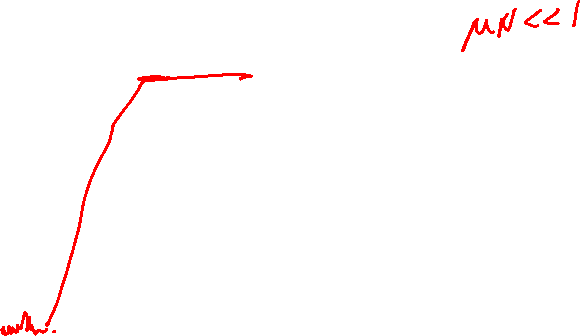 μN<<1